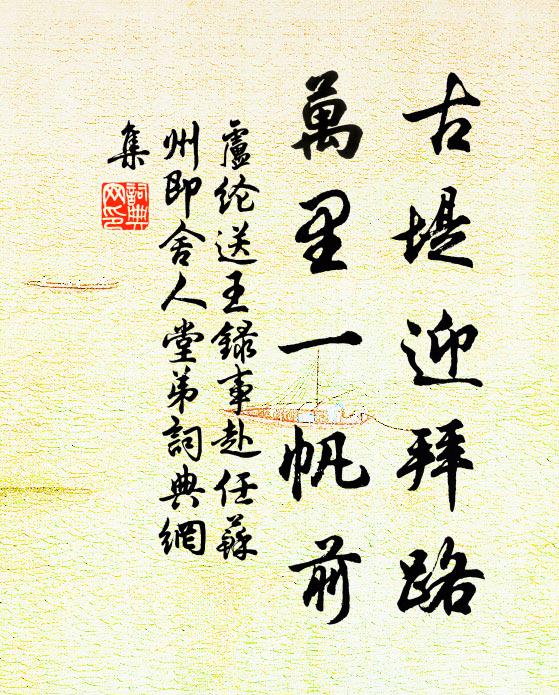 古堤迎拜路
萬里一帆前
盧纶送王録事赴任蘇
州即舍人堂弟詞典網
集
詞典
网印